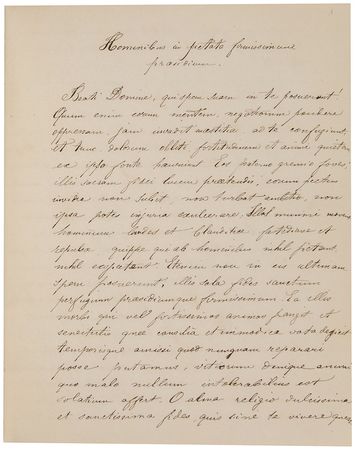 Hominibus in pietate firmissimum
praesidium.
Beati Domine, qui spem suam in te posuerunt!
Quum enim eorum mentem, negotiorum pondere
oppressam, jam invadit maestitia, ad te confugiunt,
et tunc dolorum obliti fortitudinem et animi quietem
ex ipso fonte hauriunt. Eos materno gremio foves,
illis sacram fidei lucem praetendis, eorum pectus
invidia non subit, non turbat ambitio, non
ipsa potest injuria exulcerare. Illos minime
hominum laudes et blanditiae
repulsa quippe qui ab hominibus nihil petant
nihil expectant. Etenim non in eis ultimam
spem posuerunt, illis sola fides sanctum
perfugium praesidiumque firmissimum. Ea illos
morbi qui vel fortissimos animos frangit et
senectutis quae consilia et immodica vota dejicit
temporisque amissi quod nunquam reparari
posse putamus, vitiorum denique animi
quo malo nullum intolerabilius est
solatium affert. O alma religio dulcissima
et sanctissima fides, quis sine te vivere